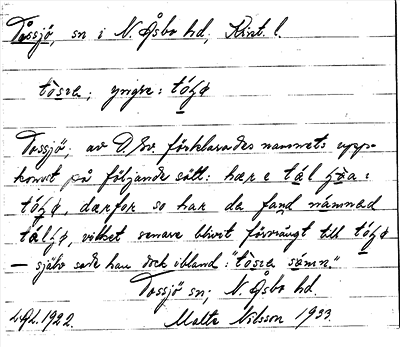 Tåssjö, sn i N. Åsbo hd, Krist. l.
tòsıa; yngre: tóʒø
Tossjö; av D/Sv förklarades namnets upp-
komst på följande sätt: hær e tàl ʒøa:
tóʒø, dærfor so har da fand nàmnad
tàlʒø, vilket senare blivit förvrängt till tóʒø
— själv sade han dock ibland: "tòsıa sǻmn."
Tossjö sn; N. Åsbo hd.
1922. Malte Nilsson 1933.